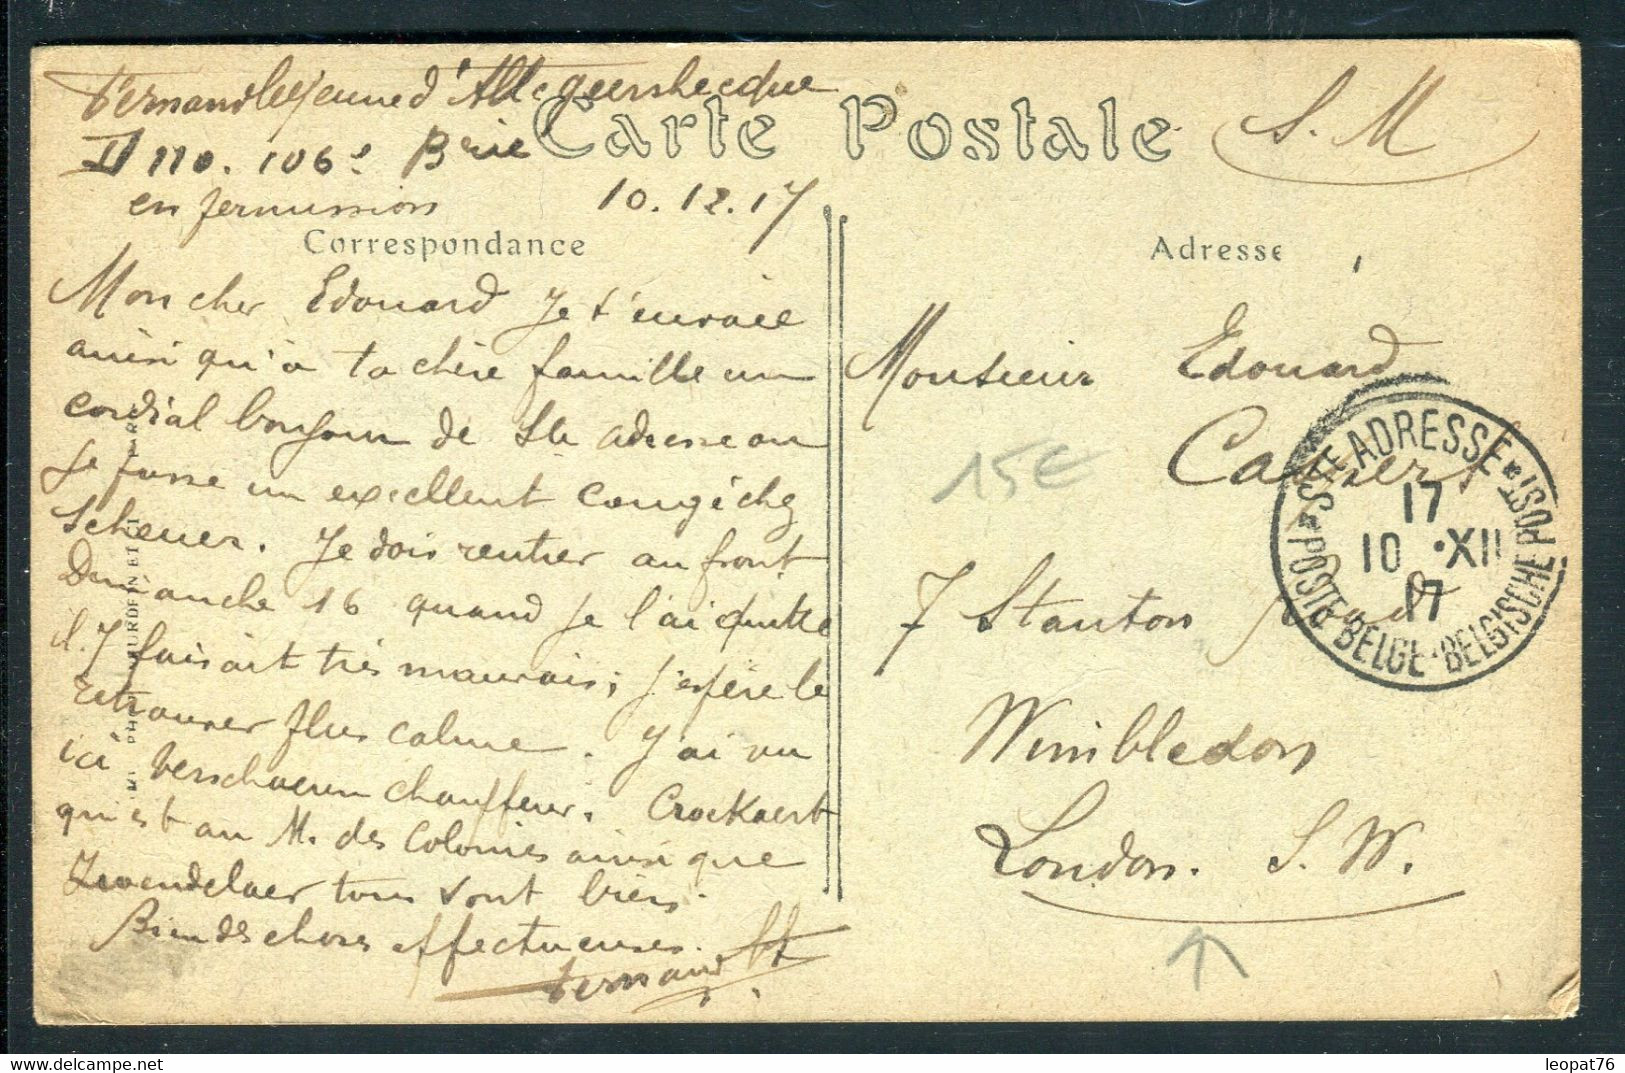 Carte Postale
S. M
110. 106e Brie
en permission 10.12.17
Correspondance
Adresse
Mon cher Edouard Je t'envoie
ainsi qu'à ta chère famille un
cordial bonjour de Ste Adresse ou
je passe un excellent congé chez
Scheuer. Je dois rentrer au front
Dimanche 16 quand je l'ai quitté
il y faisait très mauvais; j'espère le
retrouver plus calme. J'ai vu
ici Verschaeren chauffeur. Crockaert
qui est au M. des Colonies ainsi que
Zwendelaer tous sont bien.
Bien des choses affectueuses.
Fernand
Monsieur Edouard
7 Stanton Road
Wimbledon
London. S. W.
15€
STE ADRESSE
17
10 ·XII
17
POSTE BELGE·BELGISCHE POST
leopat76